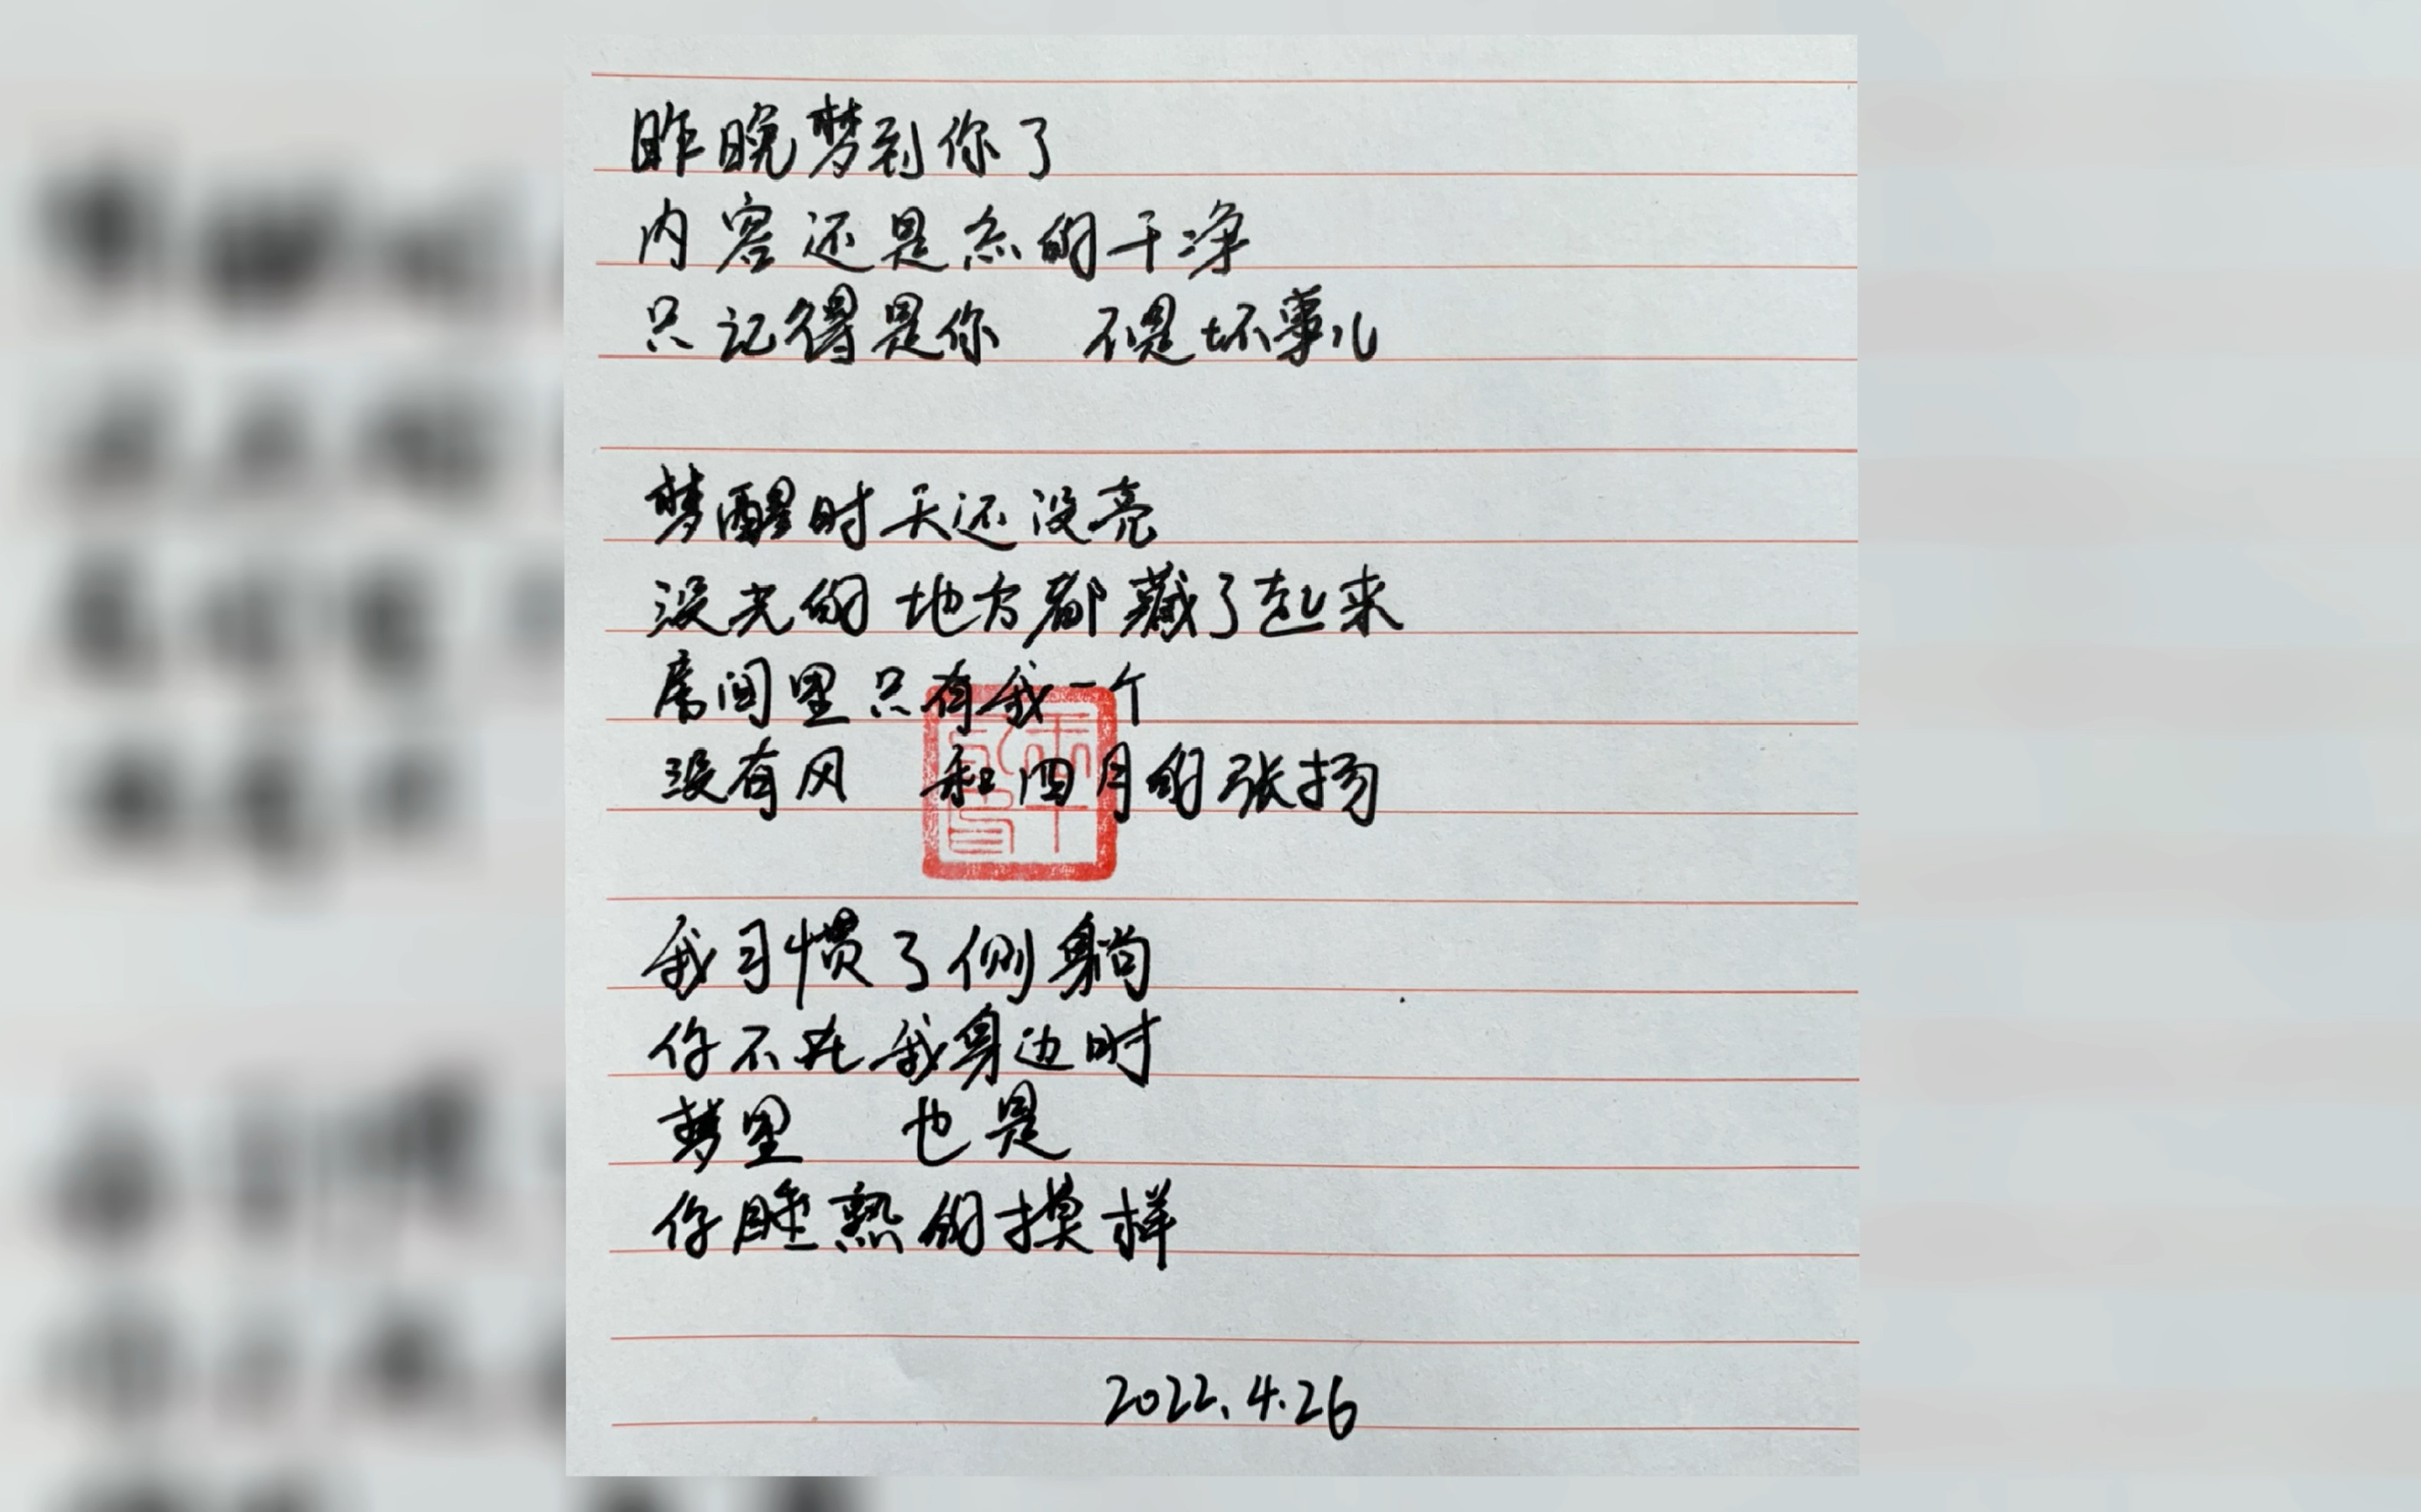 昨晚梦到你了
内容还是忘的干净
只记得是你 不是坏事儿
梦醒时天还没亮
没光的地方都藏了起来
房间里只有我一个
没有风 和四月的张扬
我习惯了侧躺
你不在我身边时
梦里 也是
你睡熟的模样
2022.4.26